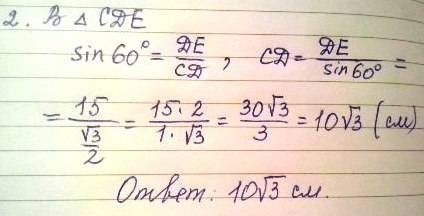 2. В △ CDE
sin 60° = DE/CD, CD = DE/sin 60° =
= 15/(√3/2) = 15·2/1·√3 = 30√3/3 = 10√3 (см)
Ответ: 10√3 см.